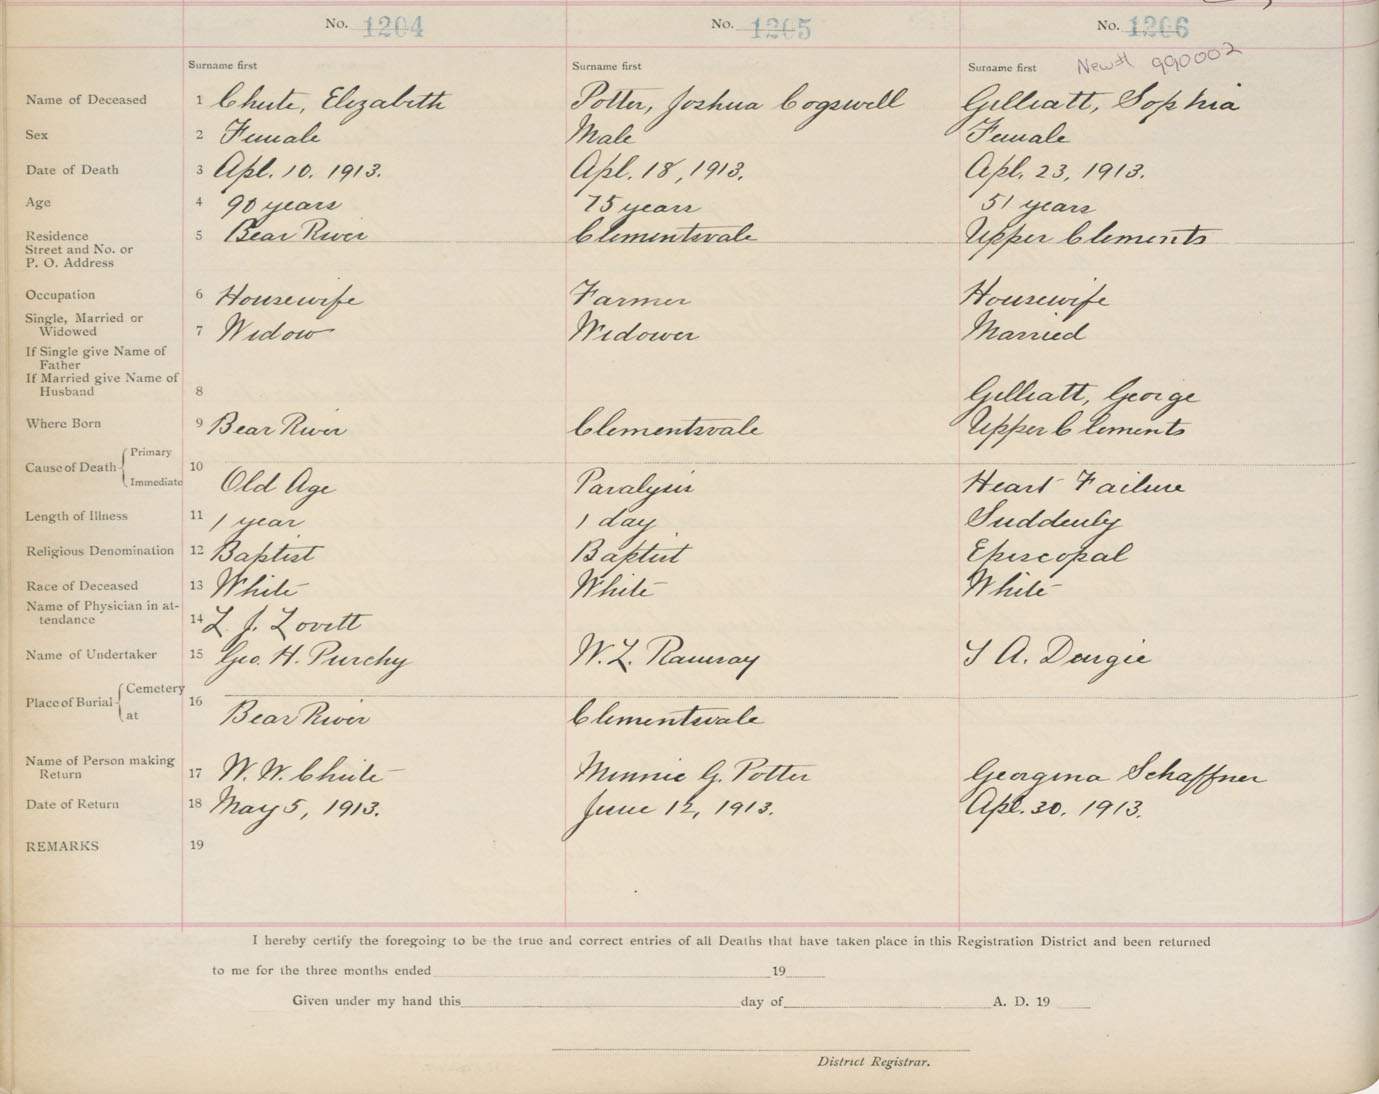 No. 1204 No. 1205 No. 1206
Surname first Surname first Surname first New# 990002
Name of Deceased 1 Chute, Elizabeth Potter, Joshua Cogswell Gilliatt, Sophia
Sex 2 Female Male Female
Date of Death 3 Apl. 10. 1913. Apl. 18, 1913. Apl. 23, 1913.
Age 4 90 years 75 years 51 years
Residence 5 Bear River Clementsvale Upper Clements
Street and No. or
P. O. Address
Occupation 6 Housewife Farmer Housewife
Single, Married or
Widowed 7 Widow Widower Married
If Single give Name of
Father
If Married give Name of
Husband 8 Gilliatt, George
Where Born 9 Bear River Clementsvale Upper Clements
Primary
Cause of Death 10
Immediate Old Age Paralysis Heart Failure
Length of Illness 11 1 year 1 day Suddenly
Religious Denomination 12 Baptist Baptist Episcopal
Race of Deceased 13 White White White
Name of Physician in at-
tendance 14 L. J. Lovett
Name of Undertaker 15 Geo. H. Purchy W. L. Ramsay A. Dargie
Cemetery
Place of Burial 16
at Bear River Clementsvale
Name of Person making
Return 17 W. W. Chute Minnie G. Potter Georgina Schaffner
Date of Return 18 May 5, 1913. June 12, 1913. Apl. 30. 1913.
REMARKS 19
I hereby certify the foregoing to be the true and correct entries of all Deaths that have taken place in this Registration District and been returned
to me for the three months ended 19
Given under my hand this day of A. D. 19
District Registrar.